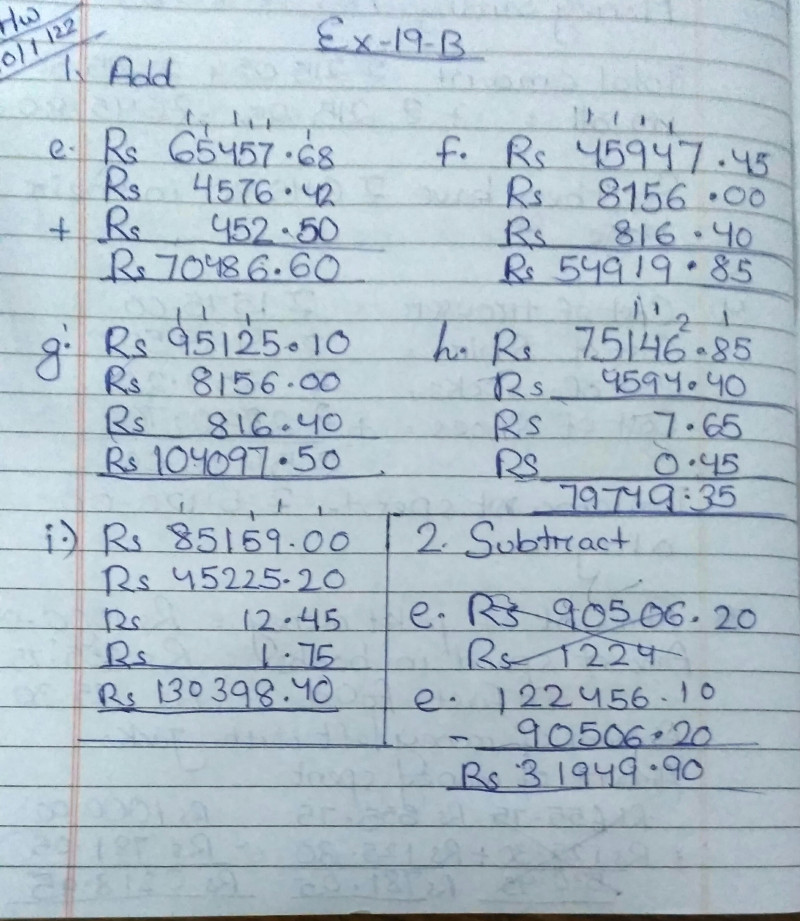 H/W
Ex-19-B
1. Add
e. Rs 65457.68
Rs 4576.42
+ Rs 452.50
Rs 70486.60
f. Rs 45947.45
Rs 8156.00
Rs 816.40
Rs 54919.85
g. Rs 95125.10
Rs 8156.00
Rs 816.40
Rs 104097.50
h. Rs 75146.85
Rs 4594.40
Rs 7.65
Rs 0.45
79749.35
i.) Rs 85159.00
Rs 45225.20
Rs 12.45
Rs 1.75
Rs 130398.40
2. Subtract
e. Rs 90506.20
Rs 1224
e. 122456.10
- 90506.20
Rs 31949.90